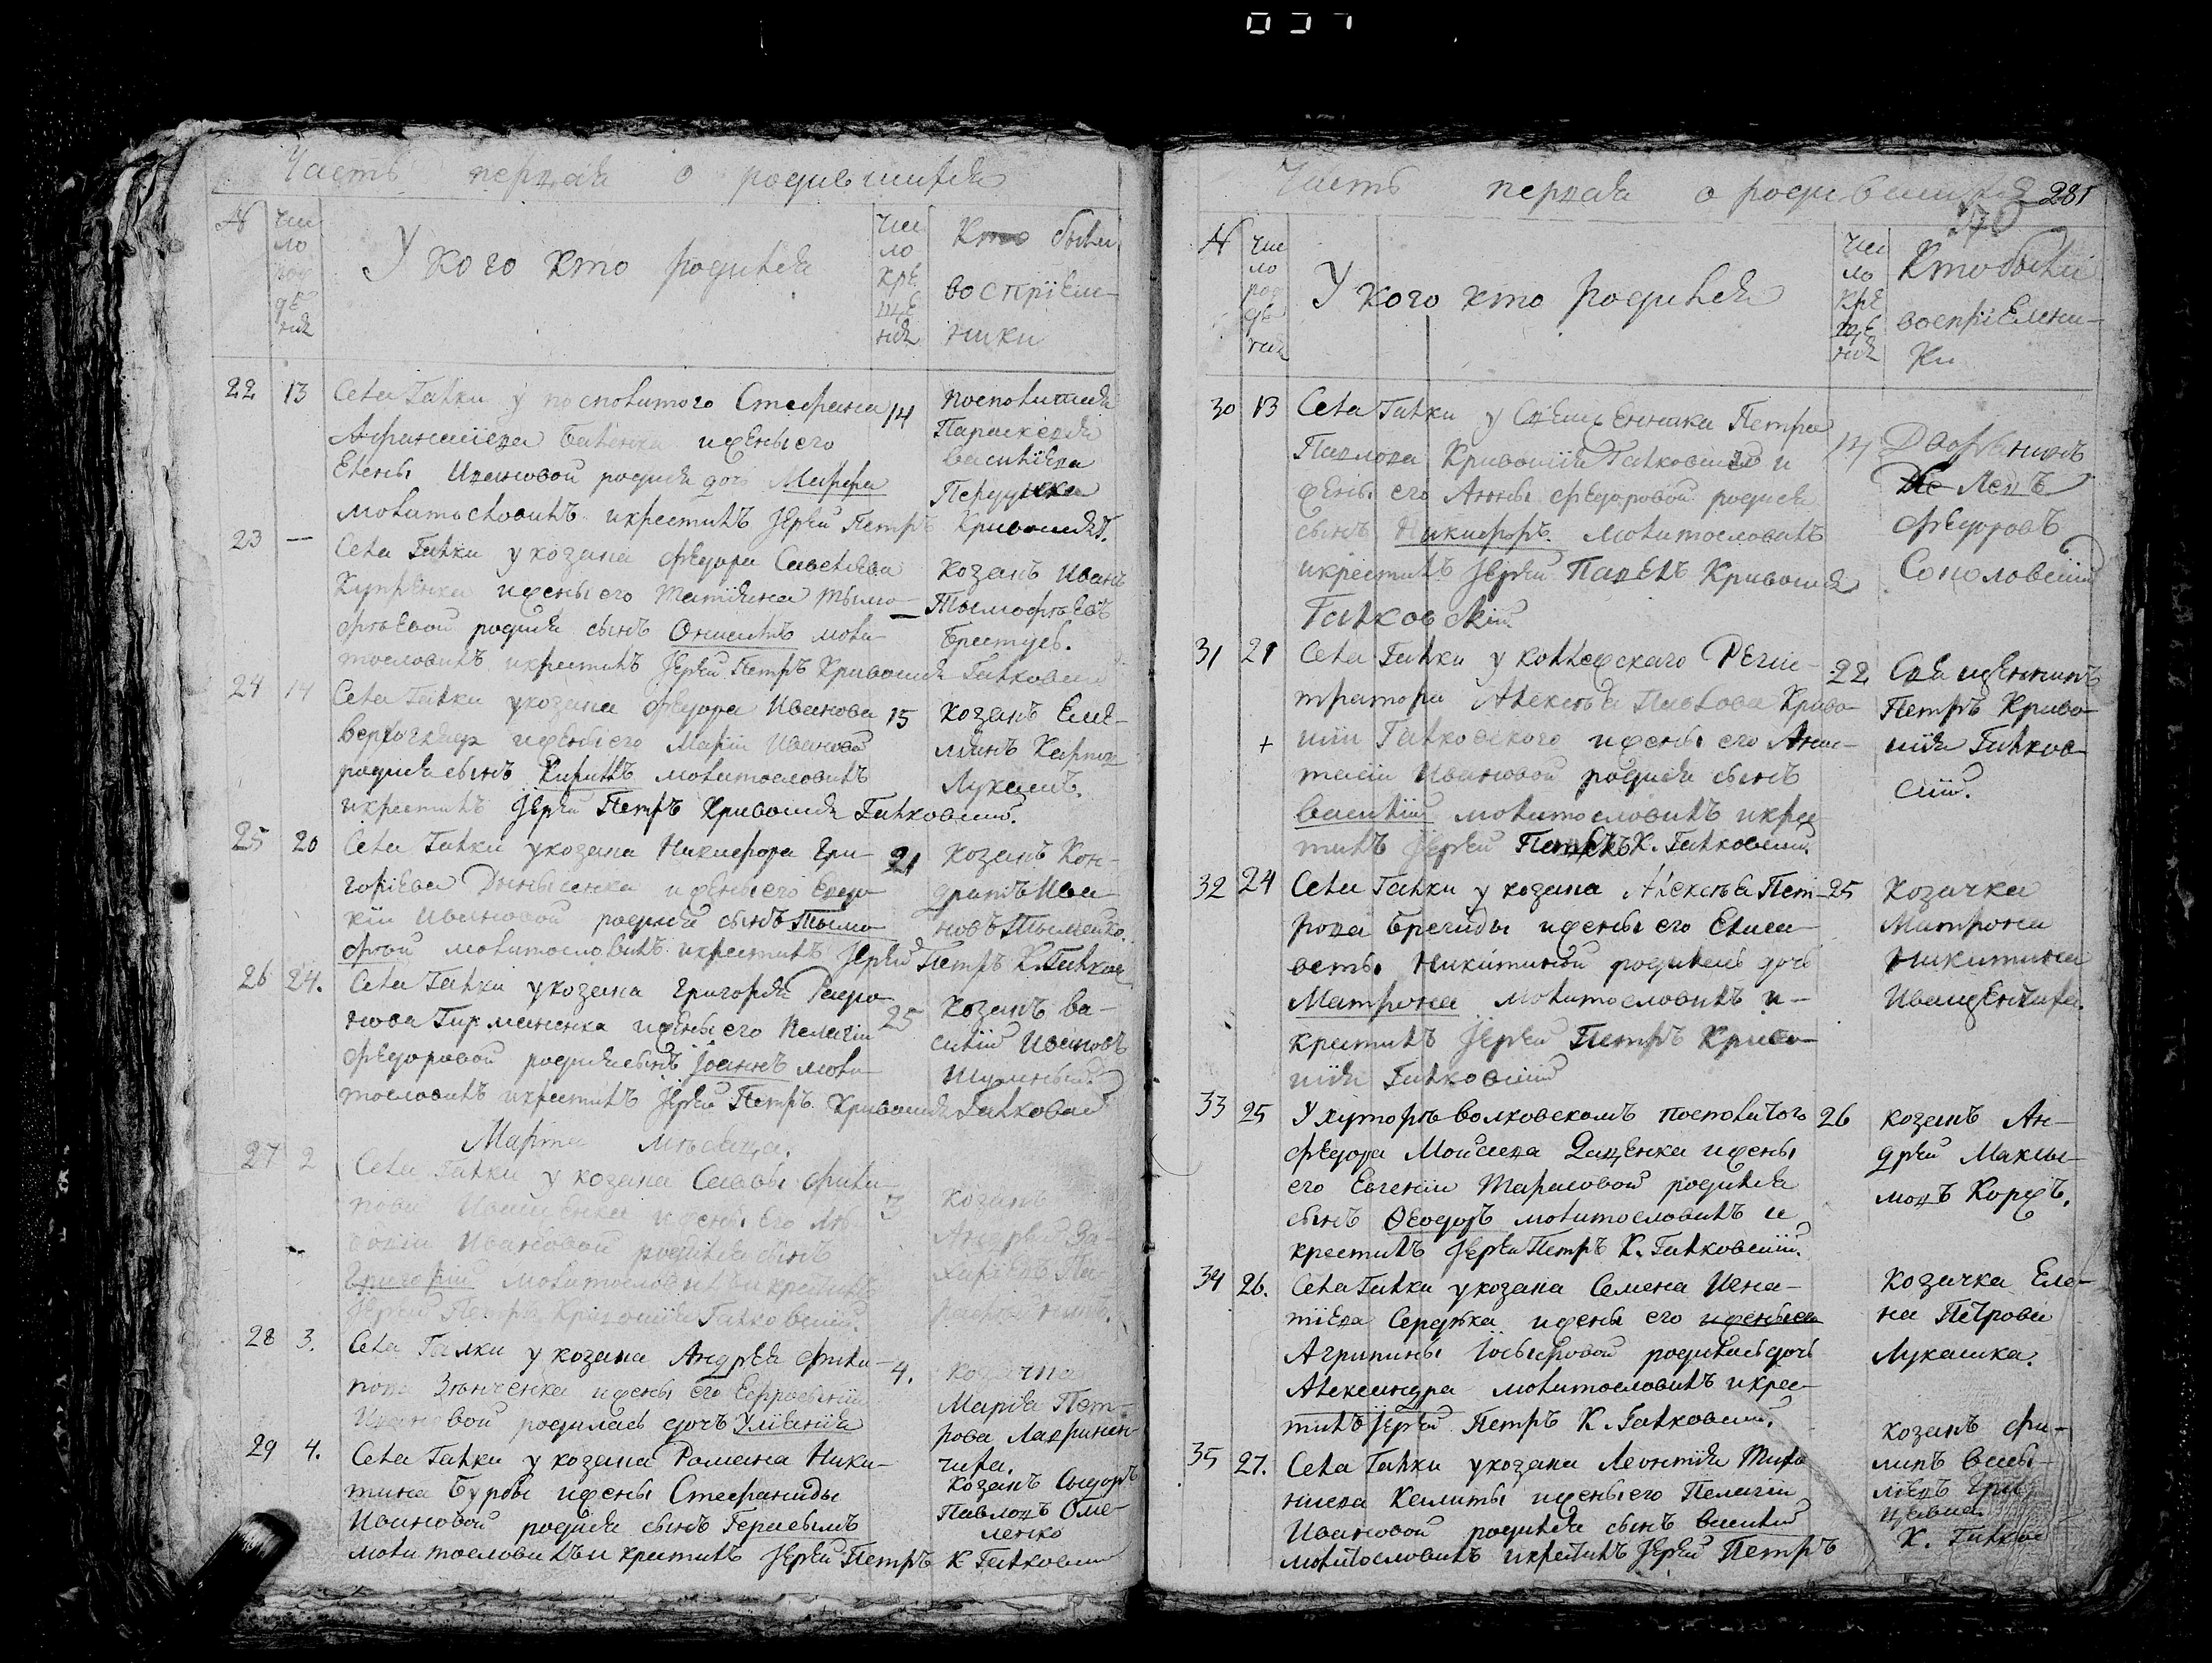 Часть первая о родившихся
N
Чи
сло
рож
де
нія
У кого кто родился
Чи
сло
кре
ще
нія
Кто были
воспріем-
ники
22 13 Села Галки у посполитого Стефана 14
Афанасіева жены его
Елены Ивановой родися дочь Марфа
молитвословилъ и крестилъ Іерей Петръ Кривошия.
посполитая
Параскевія
Василіева
23 — Села Галки у козака Федора Савелева
Купрѣнка и жены его Татіяна Тымо-
фѣевой родися сынъ Онисимъ моли-
твословилъ и крестилъ Іерей Петръ Кривошия Галковскій
— козакъ Иванъ
Тымофѣевъ
24 14 Села Галки у козака Федора Иванова 15
и жены его Маріи Ивановой
родися сынъ Кирилъ молитвословилъ
и крестилъ Іерей Петръ Кривошия Галковскій.
козакъ Еме-
лянъ Карпов
Лукашъ.
25 20 Села Галки у козака Никифора Гри- 21
горіева Дынысенка и жены его Евдо-
кіи Ивановой родися сынъ Тымо-
фѣй молитвословилъ и крестилъ Іерей Петръ К. Галковс
козакъ Кон-
дратъ Ива-
новъ
26 24. Села Галки у козака Григорія
Гирманенка и жены его Пелагіи 25
Федоровой родися сынъ Іоаннъ моли-
твословилъ и крестилъ Іерей Петръ Кривошия Галковскій
козакъ Ва-
силій Ивановъ
Марта мѣсяца.
27 2 Села Галки у козака Саввы Фили-
пова Иващенка и жены его Лю- 3
Ивановой родился сынъ
Григорій молитвословилъ и крестилъ
Іерей Петръ Кривошия Галковскій.
козакъ
Андрей За-
28 3. Села Галки у козака Андрѣя Фили- 4.
пова Зѣнченка и жены его Ефросыніи
Ивановой родилась дочь Уліянія
козачка
Марія Пет-
рова Лавринен-
чиха.
29 4. Села Галки у козака Романа Ники-
тина Бурбы и жены Стефаниды
Ивановой родися сынъ Герасымъ
молитвословилъ и крестилъ Іерей Петръ К Галковскій
козакъ Сыдоръ
Павловъ Оме-
ленко
Часть первая о родившихся 281
370
N
Чис
ло
рож
де
нія
У кого кто родился
Чис
ло
кре
ще
нія
Кто были
воспріемни-
ки
30 13 Села Галки у Священника Петра
Павлова Кривошія Галковскаго и 14
жены его Анны Федоровой родися
сынъ Никифоръ молитвословилъ
и крестилъ Іерей Павелъ Кривошия
Галковскій
Дворянинъ
Левъ
Федоровъ
Соколовскій
31 21 Села Галки у коллежскаго Регис- 22
тратора Алексѣя Павлова Криво-
+ шіи Галковского и жены его Анас-
тасіи Ивановой родися сынъ
Василій молитвословилъ и крес
тилъ Іерей Петръ К. Галковскій.
Священникъ
Петръ Криво-
шія Галков-
скій.
32 24 Села Галки у козака Алексѣя Пет- 25
рова Бречиды и жены его Елиса-
веты Никитиной родилась дочь
Матрона молитвословилъ и-
крестилъ Іерей Петръ Криво-
шія Галковскій
козачка
Матрона
Никитина
Иващенчиха.
33 25 У хуторѣ волковскомъ посполитого 26
Федора Мойсеева Даценка и жены
его Евгеніи Тарасовой родился
сынъ Ѳеодоръ молитвословилъ и
крестилъ Іерей Петръ К. Галковскій.
козакъ Ан-
дрей Максы-
мовъ Коржъ.
34 26. Села Галки у козака Семена Игна-
тіева Сердюка и жены его и жены его
Агрипины Іосыфовой родилась дочь
Александра молитвословилъ и крес-
тилъ Іерей Петръ К. Галковскій.
козачка Еле-
на Петрова
Лукашка.
35 27. Села Галки у козака Леонтія
Калиты и жены его Пелагіи
Ивановой родился сынъ Василій
молитвословилъ и крестилъ Іерей Петръ К. Галков
козакъ Фи-
липъ Васы-
ліевъ